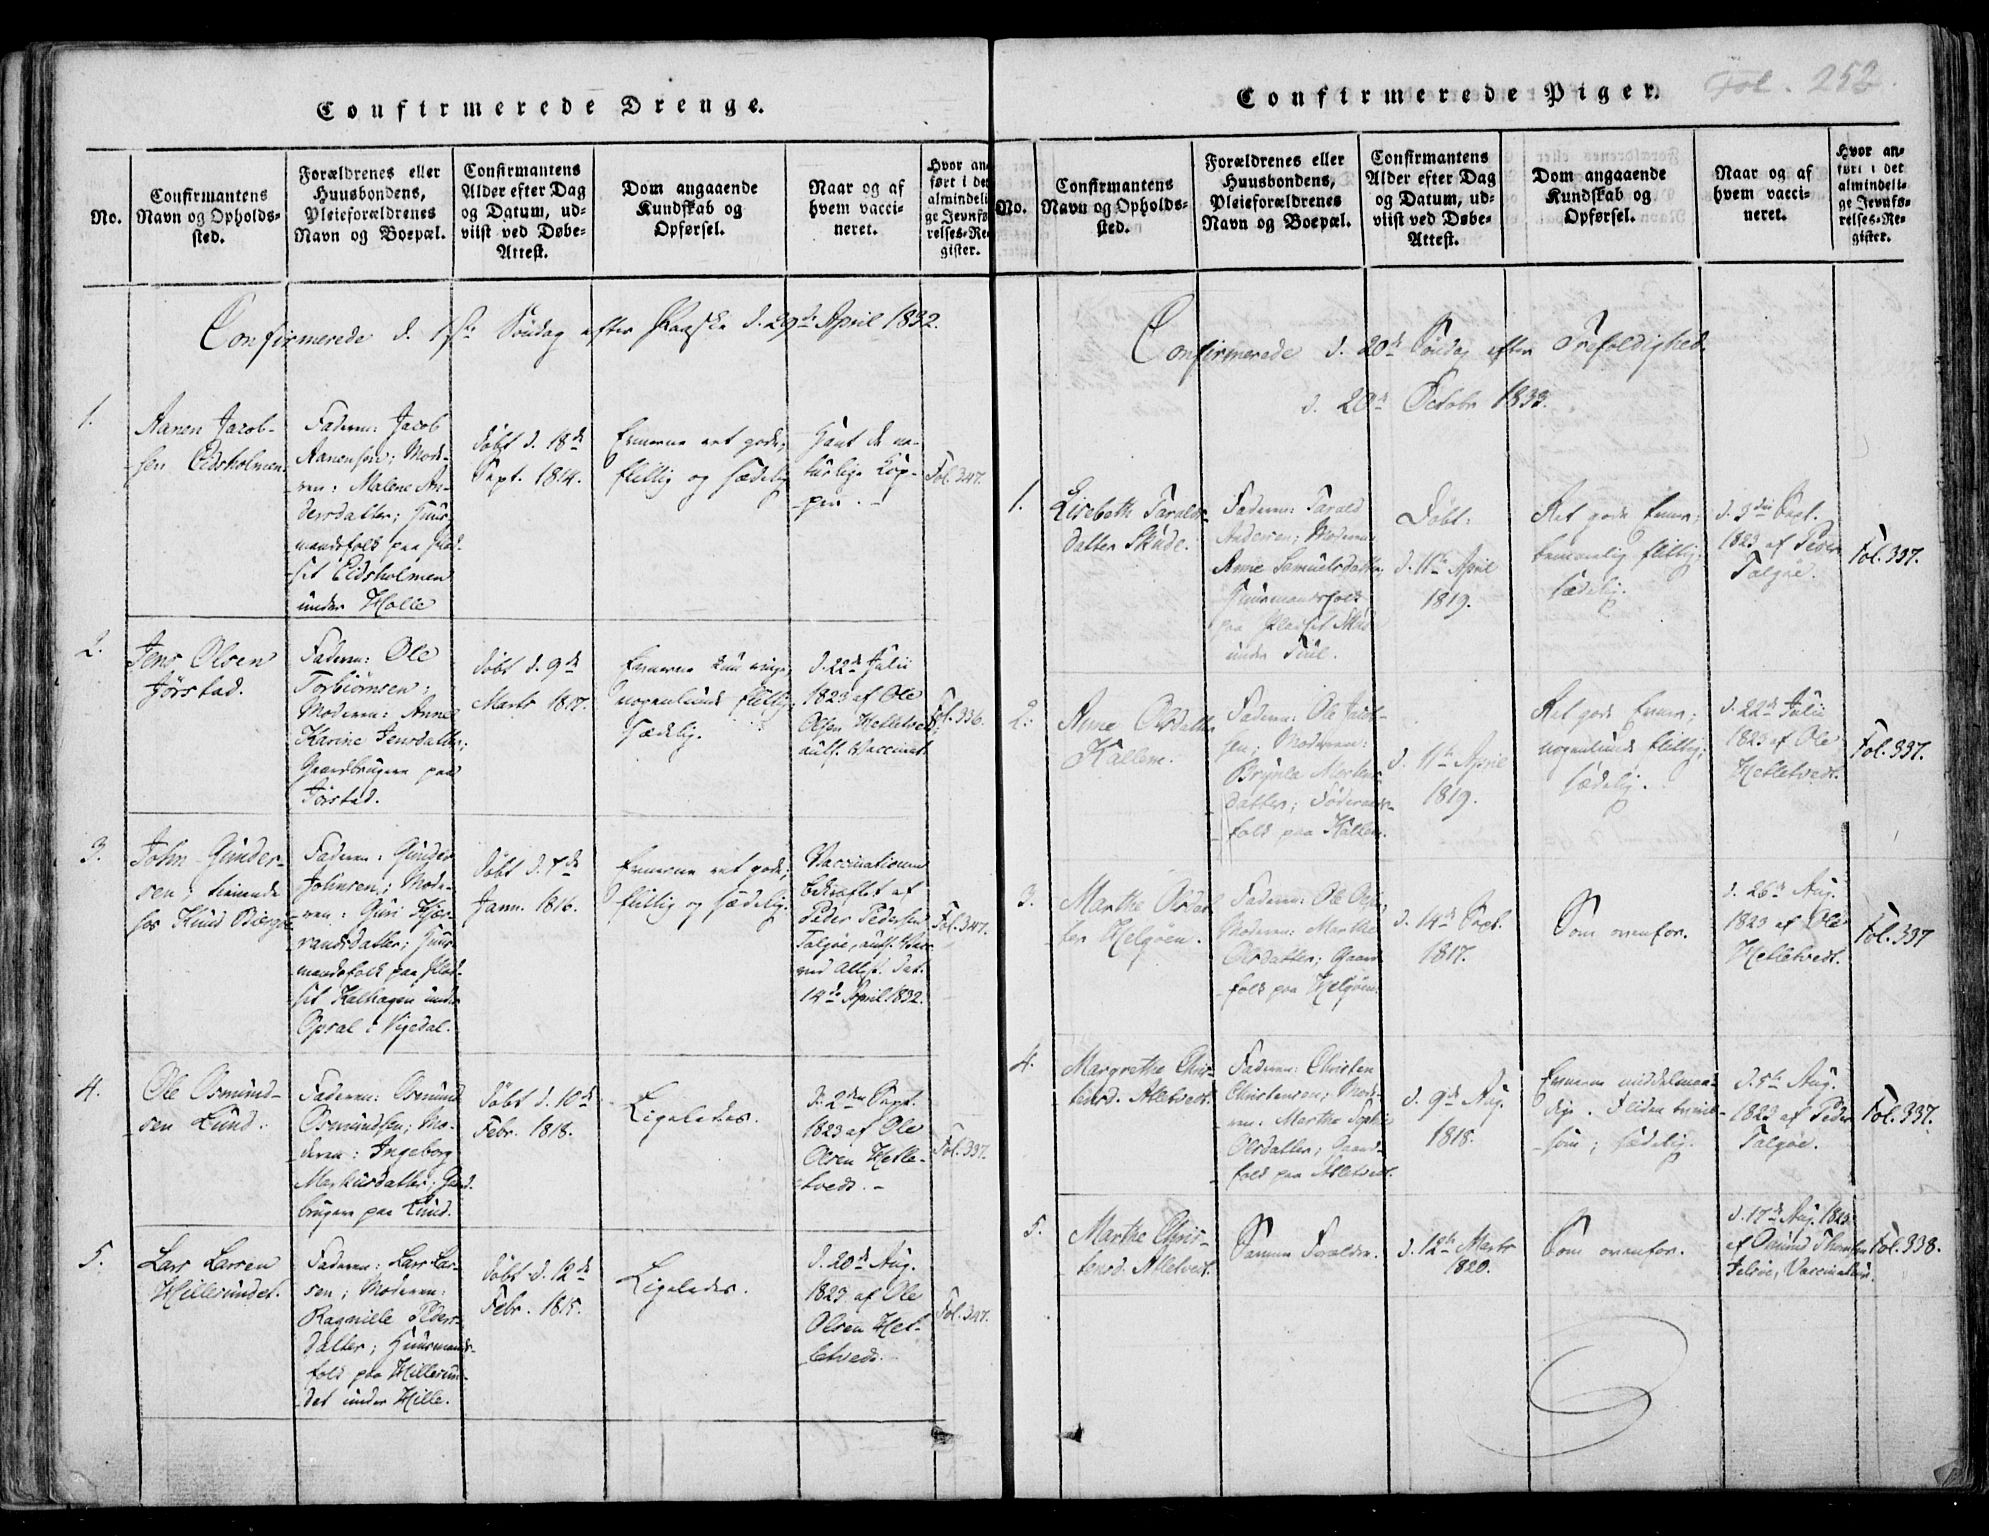 Confirmerede Drenge.
No.
Confirmantens
Navn og Opholds-
sted.
Forældrenes eller
Huusbondens,
Pleieforældrenes
Navn og Boepæl.
Confirmantens
Alder efter Dag
og Datum, ud-
viist ved Døbe-
Attest.
Dom angaaende
Kundskab og
Opførsel.
Naar og af
hvem vacci-
neret.
Hvor an-
ført i det
almindeli-
ge Jevnfø-
relses-Re-
gister.
Confirmerede d. 1ste Søndag efter Paaske d. 29de April 1832.
1.
Aanen Jacob-
sen Eidsholmen.
Faderen: Jacob
Aanensen; Mode-
ren: Malene An-
dersdatter; Huus-
mandsfolk paa Plad-
set Eidsholmen
under Holle
døbt d. 18de
Sept. 1814.
Evnerne ret gode;
flittig og sædelig
Havt de na-
turlige Kop-
per.
Fol. 347.
2.
Jens Olsen
Jørstad.
Faderen: Ole
Torbiørnsen;
Moderen: Anne
Karine Jensdatter;
Gaardbrugere paa
Jørstad.
døbt d. 9de
Marts 1817.
Evnerne kun ringe,
nogenlunde flittig,
Sædelig.
d. 22de Julii
1823 af Ole
Olsen Hetletvedt,
aut. Vaccinat.
Fol. 336.
3.
John Gunder-
sen, tienende
hos Knud
Faderen: Gunder
Johnsen; Mode-
ren: Guri
randsdatter; Huus-
mandsfolk paa Plad-
set Kalhagen under
Opsal i Vigedal.
døbt d. 7de
Janu. 1816.
Evnerne ret gode;
flittig og sædelig.
Vaccinationen
bekræftet af
Peder Pedersen
Talgøe, aut. Vacc.
ved Attest dat.
14de April 1832.
Fol. 347.
4.
Ole Osmund-
sen Lund.
Faderen: Osmund
Osmundsen; Mo-
deren: Ingeborg
Markusdatter; Gaard-
brugere paa Lund.
døbt d. 10de
Febr. 1818.
Ligeledes.
d. 2den Sept.
1823 af Ole
Olsen Hetle-
tvedt.
Fol. 337.
5.
Lars Larsen
Hillesundet.
Faderen: Lars Lar-
sen; Moderen:
Ragnille Peders-
datter; Huusmands-
folk paa Hillesun-
det under Hille.
døbt d. 12de
Febr. 1815.
Ligeledes.
d. 20de Aug.
1823 af Ole
Olsen Het-
letvedt.
Fol. 347.
Confirmerede Piger.
Fol. 252
No.
Confirmantens
Navn og Opholds-
sted.
Forældrenes eller
Huusbondens,
Pleieforældrenes
Navn og Boepæl.
Confirmantens
Alder efter Dag
og Datum, ud-
viist ved Døbe-
Attest.
Dom angaaende
Kundskab og
Opførsel.
Naar og af
hvem vacci-
neret.
Hvor an-
ført i det
almindeli-
ge Jevnfø-
relses-Re-
gister.
Confirmerede d. 20de Søndag efter Trefoldighed.
d. 20de Octobr 1833.
1.
Lisebeth Taralds-
datter Skude.
Faderen: Tarald
Andersen; Moderen:
Anne Samuelsdatter;
Huusmandsfolk
paa Pladset Skude
under
Døbt:
d. 11te April
1819.
Ret gode Evner;
temmelig flittig;
sædelig.
d. 9de Sept.
1823 af Peder
Talgøe.
Fol. 337.
2.
Anne Olsdatter
Kallem.
Faderen: Ole Jacob-
sen; Moderen:
Brynla Mortens-
datter; Føderaads-
folk paa Kallem.
d. 11te April
1819.
Ret gode Evner;
nogenlunde flittig;
sædelig.
d. 22de Julii
1823 af Ole
Hetletvedt.
Fol. 337.
3.
Marthe Olsdat-
ter Helgøen.
Faderen: Ole Olsen;
Moderen: Marthe
Olsdatter; Gaard-
folk paa Helgøen.
d. 14de Sept.
1817.
Som ovenfor.
d. 26de Aug.
1823 af Ole
Hetletvedt.
Fol. 337
4.
Margrethe Chris-
tensd. Atletvedt.
Faderen: Christen
Christensen; Mode-
ren: Marthe Sophie
Olsdatter; Gaard-
folk paa Atletvedt.
d. 9de Aug.
1818.
Evnerne middelmaa-
dige. Fliden
som; sædelig.
d. 5te Aug.
1823 af Peder
Talgøe.
Fol. 337.
5.
Marthe Chris-
tensd. Atletvedt.
Samme Forældre.
d. 12te Marts
1820.
Som ovenfor.
d. 17de Aug. 1823
af Osmund Thorsen
Jelsøe, Vaccinatør.
Fol. 338.